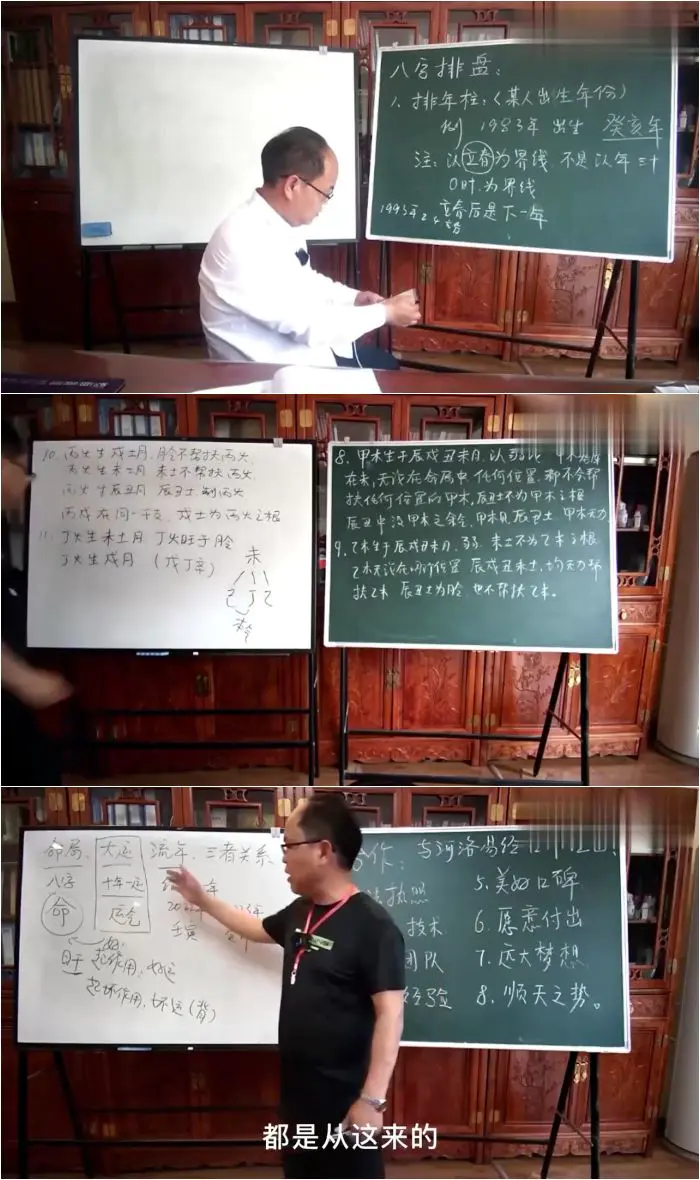 八字排盘:
1、排年柱:(某人出生年份)
例 1983年 出生 癸亥年
注:以立春为界线 不是以年三十
0时.为界线
立春后是下一年
10、丙火生戌土月.
丙火生未土月 未土不帮扶丙火
丙火生辰丑月
丙戌在同一干支、戌土为丙火之根
11、丁火生未土月 丁火旺于
丁火生戌月 (戊丁辛)
未
己 丁 乙
8、甲木生于辰戌丑未月.以弱论
在未,无论在命局中任何位置.都不会帮
扶任何位置的甲木,辰丑土不为甲木之根
9、乙木生于辰戌丑未月、弱. 未土不为乙木之根
乙木无论在 位置 辰戌丑未土、均无力帮
扶乙木 辰丑土为 也不帮扶乙木。
命局、大运、流年、三者关系
八字 十年一运 年
命 运气
壬寅
起 作用、好运
起坏作用、坏运(背)
作: 与河洛易经
执照
技术
团队
经验
5、美好口碑
6、愿意付出
7、远大梦想
8、顺天之势。
都是从这来的